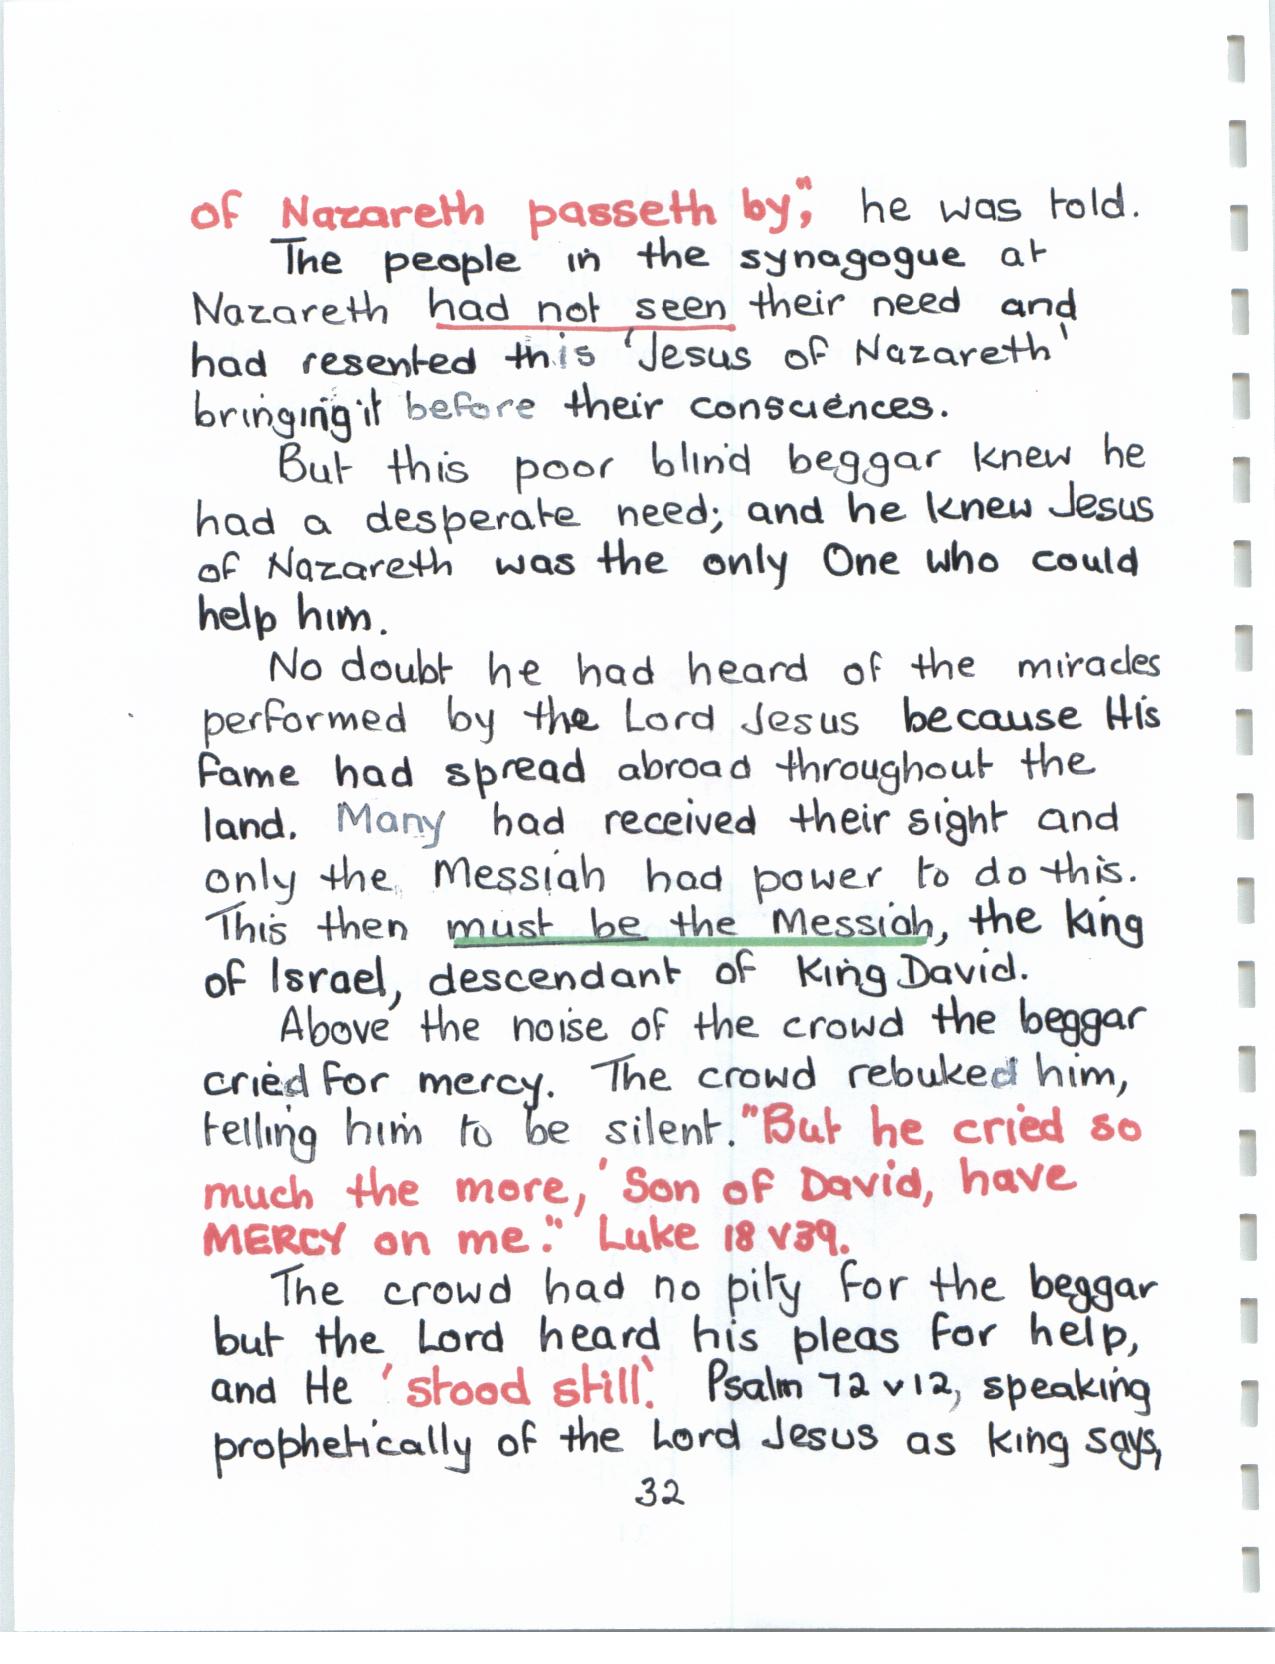 of Nazareth passeth by", he was told.
The people in the synagogue at
Nazareth had not seen their need and
had resented this 'Jesus of Nazareth'
bringing it before their consciences.
But this poor blind beggar knew he
had a desperate need; and he knew Jesus
of Nazareth was the only One who could
help him.
No doubt he had heard of the miracles
performed by the Lord Jesus because His
fame had spread abroad throughout the
land. Many had received their sight and
only the Messiah had power to do this.
This then must be the Messiah, the king
of Israel, descendant of King David.
Above the noise of the crowd the beggar
cried for mercy. The crowd rebuked him,
telling him to be silent. "But he cried so
much the more, 'Son of David, have
MERCY on me'." Luke 18 v39.
The crowd had no pity for the beggar
but the Lord heard his pleas for help,
and He 'stood still'. Psalm 72 v12, speaking
prophetically of the Lord Jesus as king says,
32